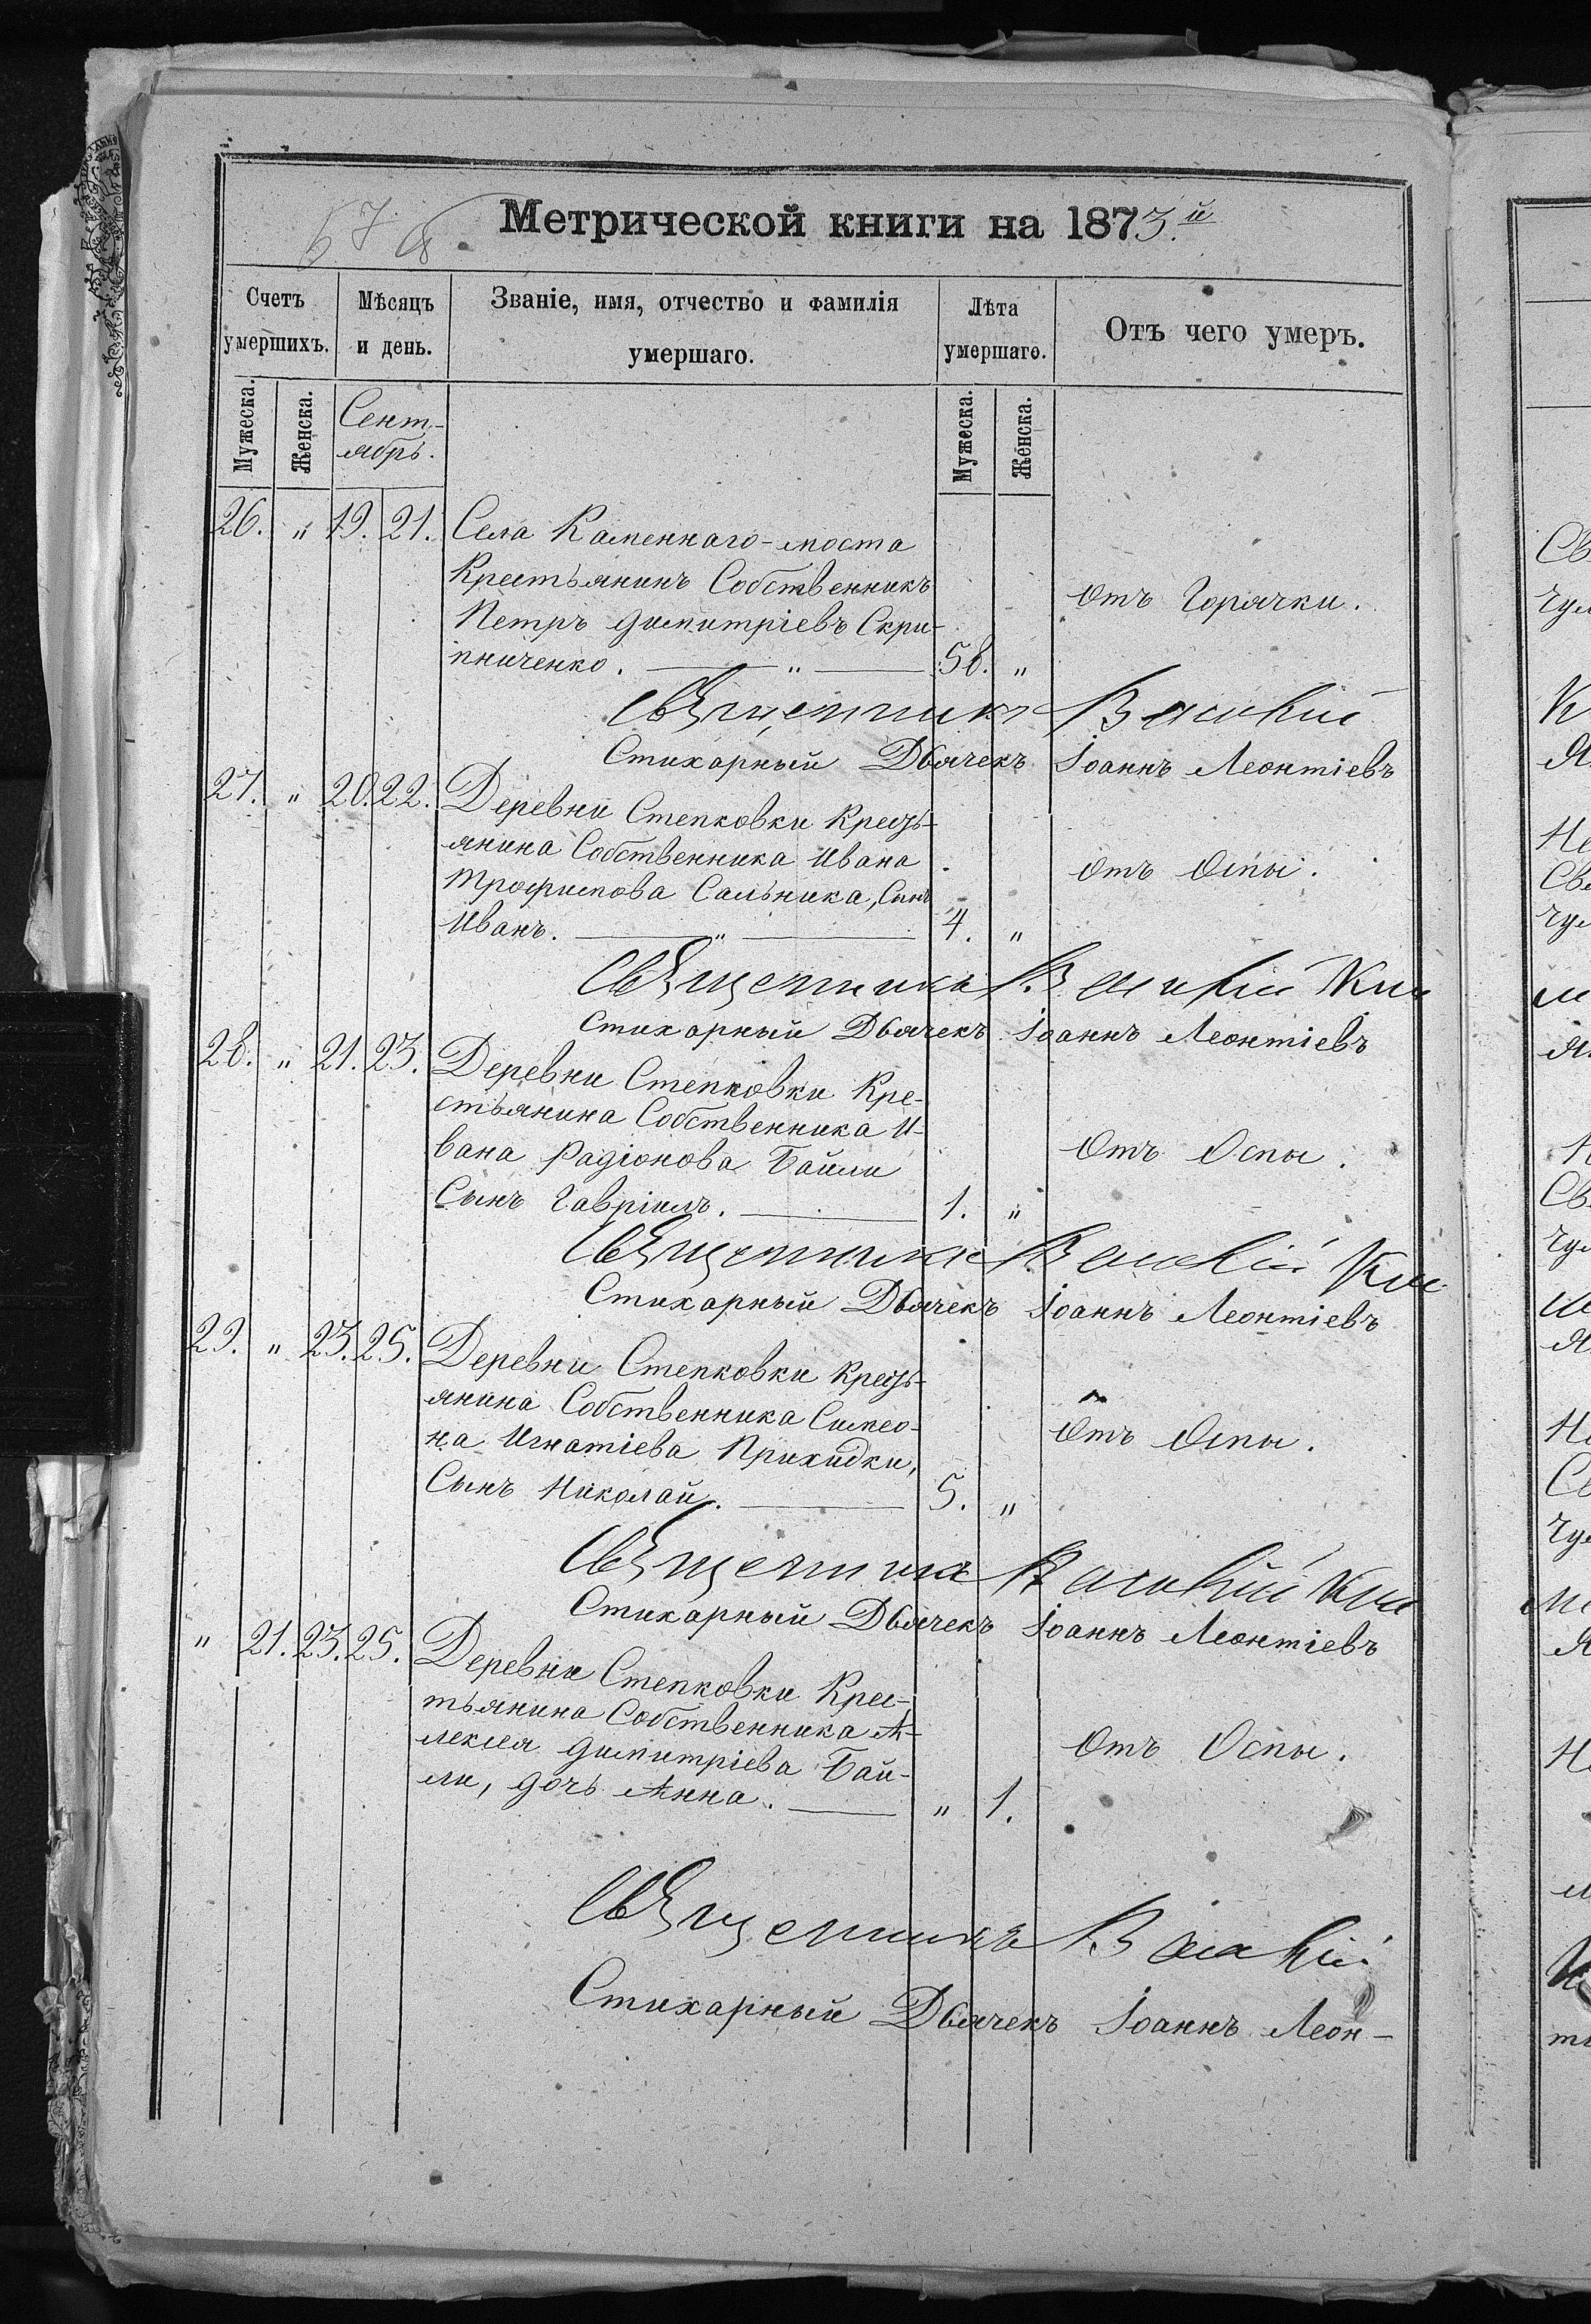 Метрической книги на 1873.й
Счетъ умершихъ.
Мѣсяцъ и день.
Званіе, имя, отчество и фамилія умершаго.
Лѣта умершаго.
Отъ чего умеръ.
Мужеска.
Женска.
Сент-
ябрь.
Мужеска.
Женска.
26. " 19. 21. Села Каменнаго-моста
Крестьянинъ Собственникъ
Отъ Горячки.
Петръ Димитріевъ Скри-
пниченко. — " — 58. "
Священникъ Василій
Стихарный Дьячекъ Іоаннъ Леонтіевъ
27. " 20. 22. Деревни Степковки Кресть-
янина Собственника Ивана
Отъ Оспы.
Трофимова Сальника, Сынъ
Иванъ. — " — 4. "
Священникъ Василій
Стихарный Дьячекъ Іоаннъ Леонтіевъ
28. " 21. 23. Деревни Степковки Кре-
стьянина Собственника И-
вана Радіонова Байли
Отъ Оспы.
Сынъ Гавріилъ. — 1. "
Священникъ Василій
Стихарный Дьячекъ Іоаннъ Леонтіевъ
29. " 23. 25. Деревни Степковки Кресть-
янина Собственника Симео-
на Игнатіева Прихидки,
Отъ Оспы.
Сынъ Николай. — 5. "
Священникъ Василій
Стихарный Дьячекъ Іоаннъ Леонтіевъ
" 21. 23. 25. Деревни Степковки Крес-
тьянина Собственника А-
лексея Димитріева Бай-
Отъ Оспы.
ли, дочь Анна. — " 1.
Священникъ Василій
Стихарный Дьячекъ Іоаннъ Леон-